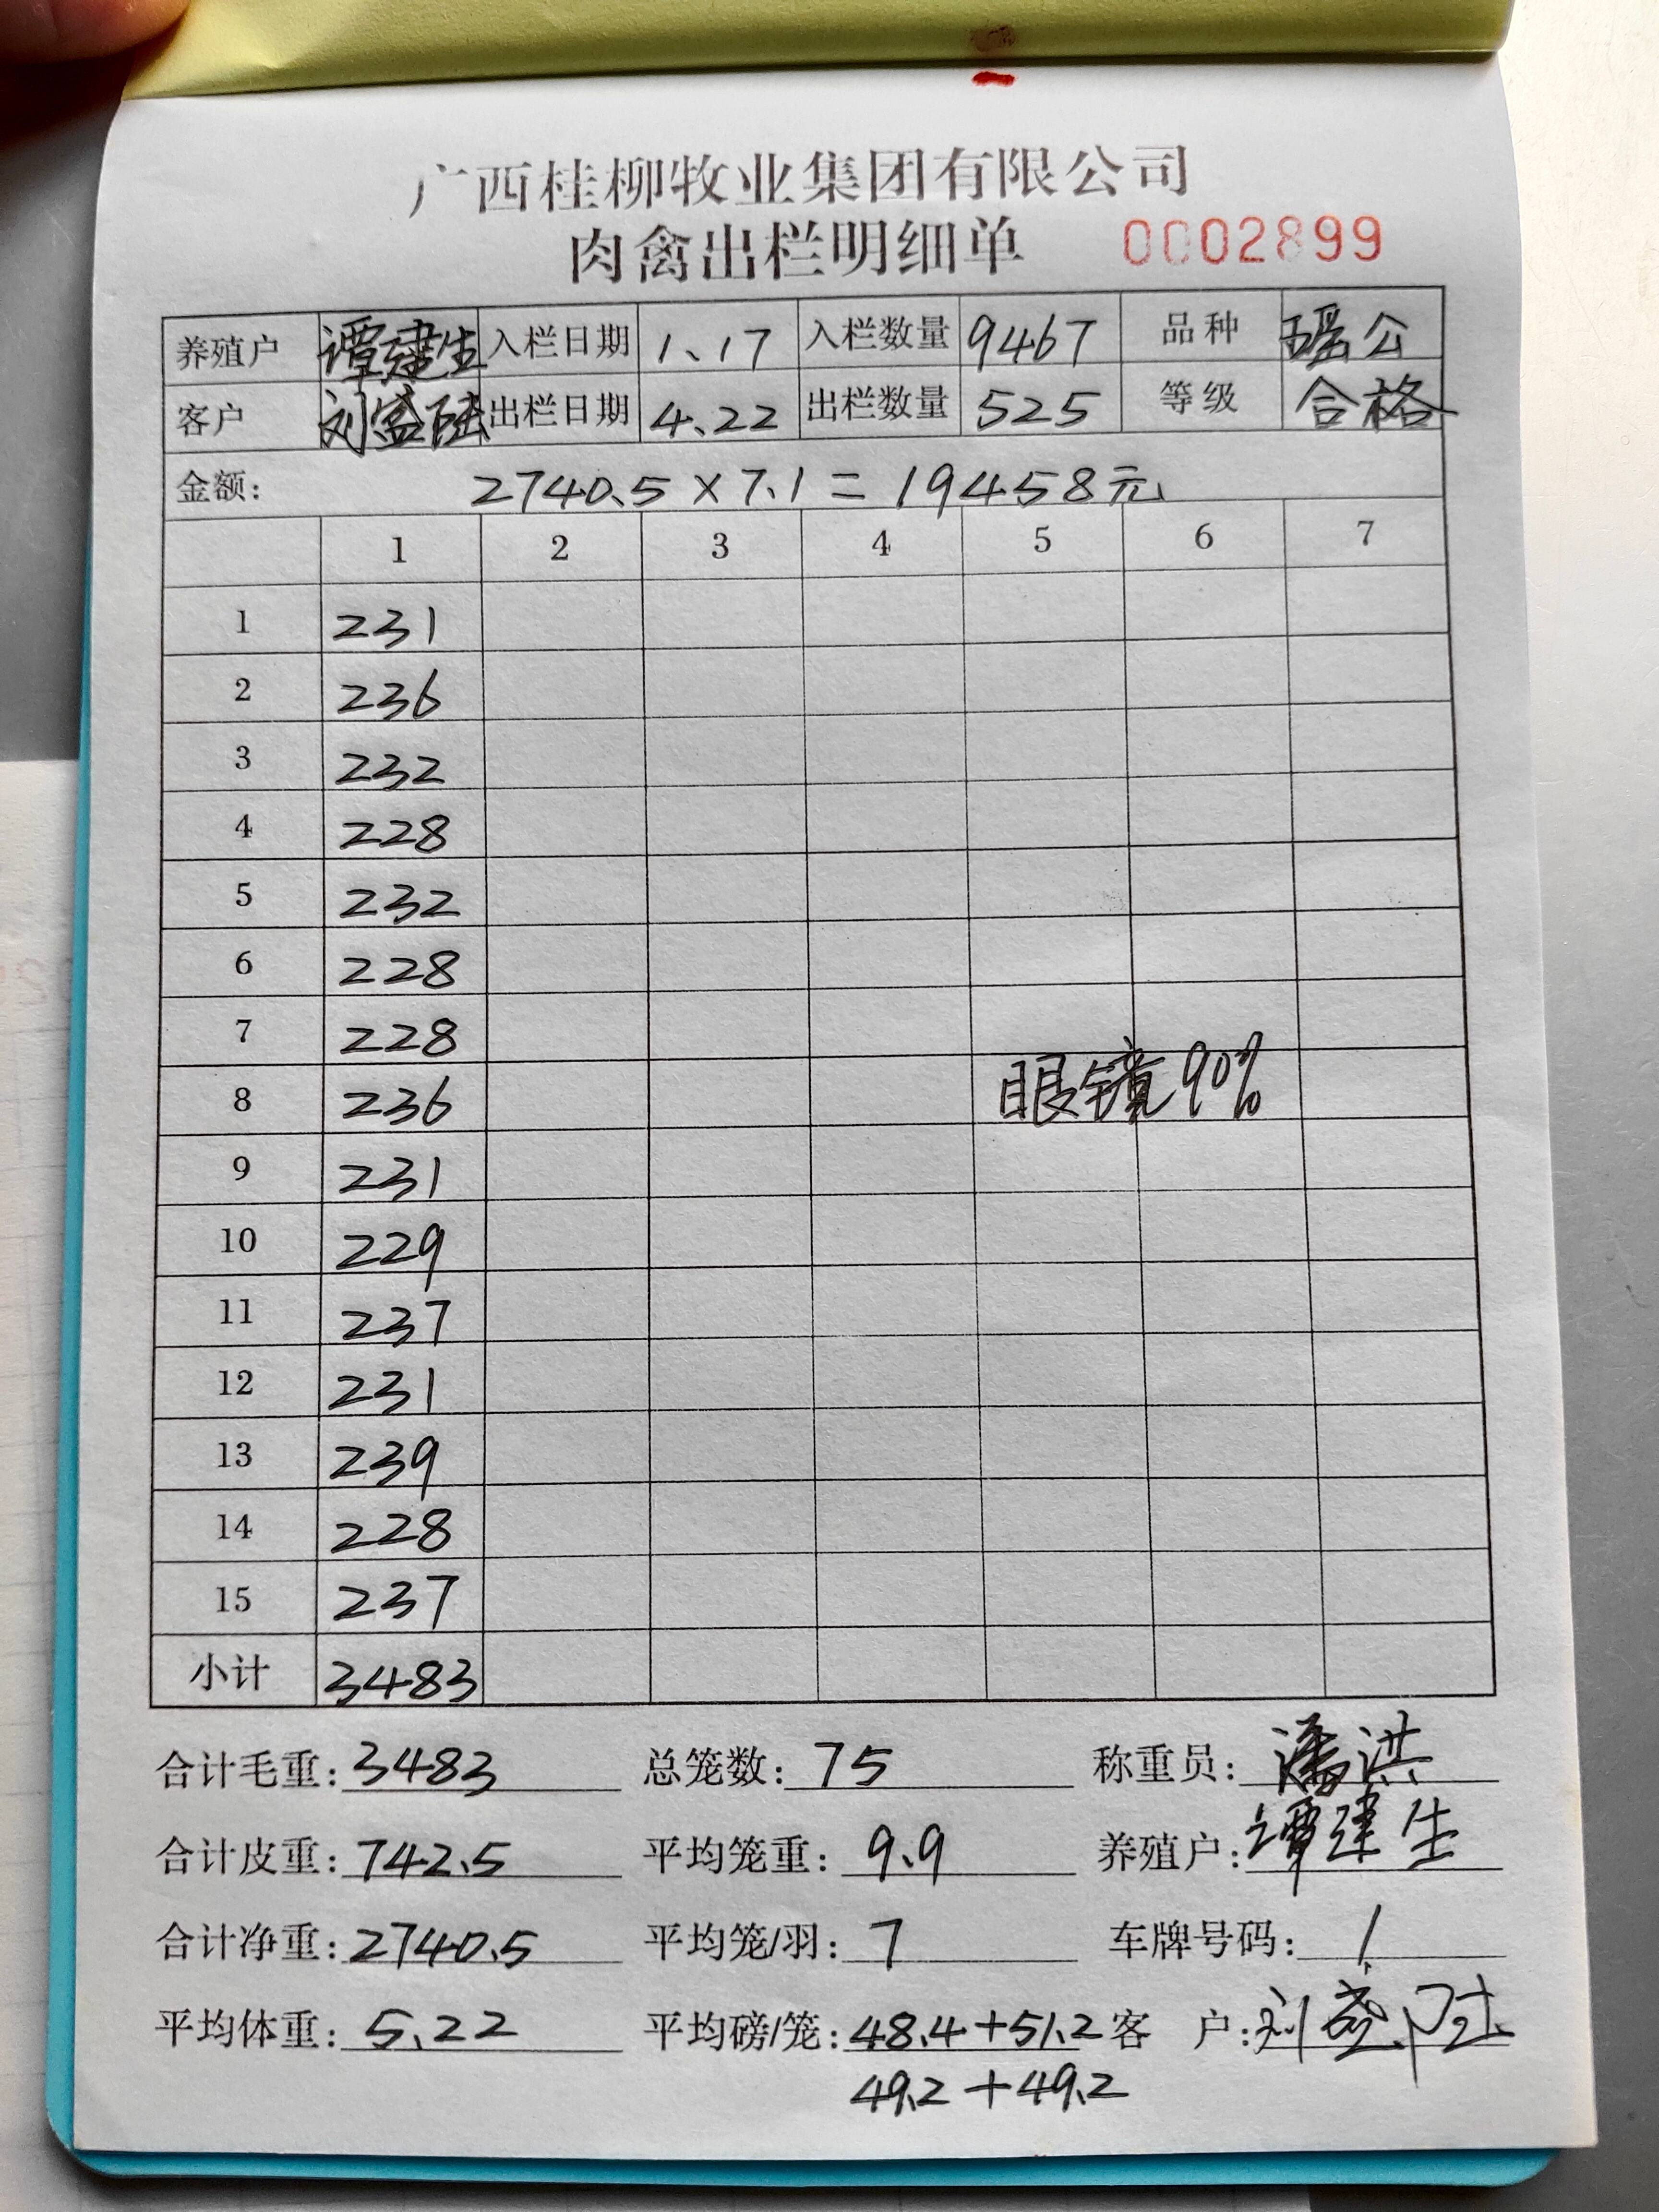 广西桂柳牧业集团有限公司
肉禽出栏明细单 0002899
养殖户 谭建生 入栏日期 1、17 入栏数量 9467 品种 瑶公
客户 刘盛陆 出栏日期 4、22 出栏数量 525 等级 合格
金额: 2740.5×7.1=19458元
1 2 3 4 5 6 7
1 231
2 236
3 232
4 228
5 232
6 228
7 228
8 236 眼镜90%
9 231
10 229
11 237
12 231
13 239
14 228
15 237
小计 3483
合计毛重: 3483 总笼数: 75 称重员: 潘洪
合计皮重: 742.5 平均笼重: 9.9 养殖户: 谭建生
合计净重: 2740.5 平均笼/羽: 7 车牌号码: /
平均体重: 5.22 平均磅/笼: 48.4+51.2 客户: 刘盛陆
49.2+49.2